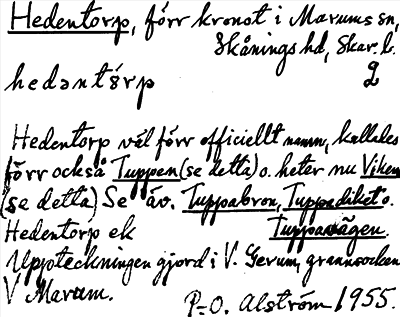 Hedentorp, förr kronst i Marums sn,
Skånings hd, Skar. l.
hedəntórp 2
Hedentorp väl förr officiellt namn, kallades
förr också Tuppen (se detta) o. heter nu Viken
(se detta) Se äv. Tuppabron, Tuppadiket o.
Hedentorp ek Tuppavägen.
Uppteckningen gjord i V. Gerum, grannsocken
V Marum.
P-O. Alström 1955.